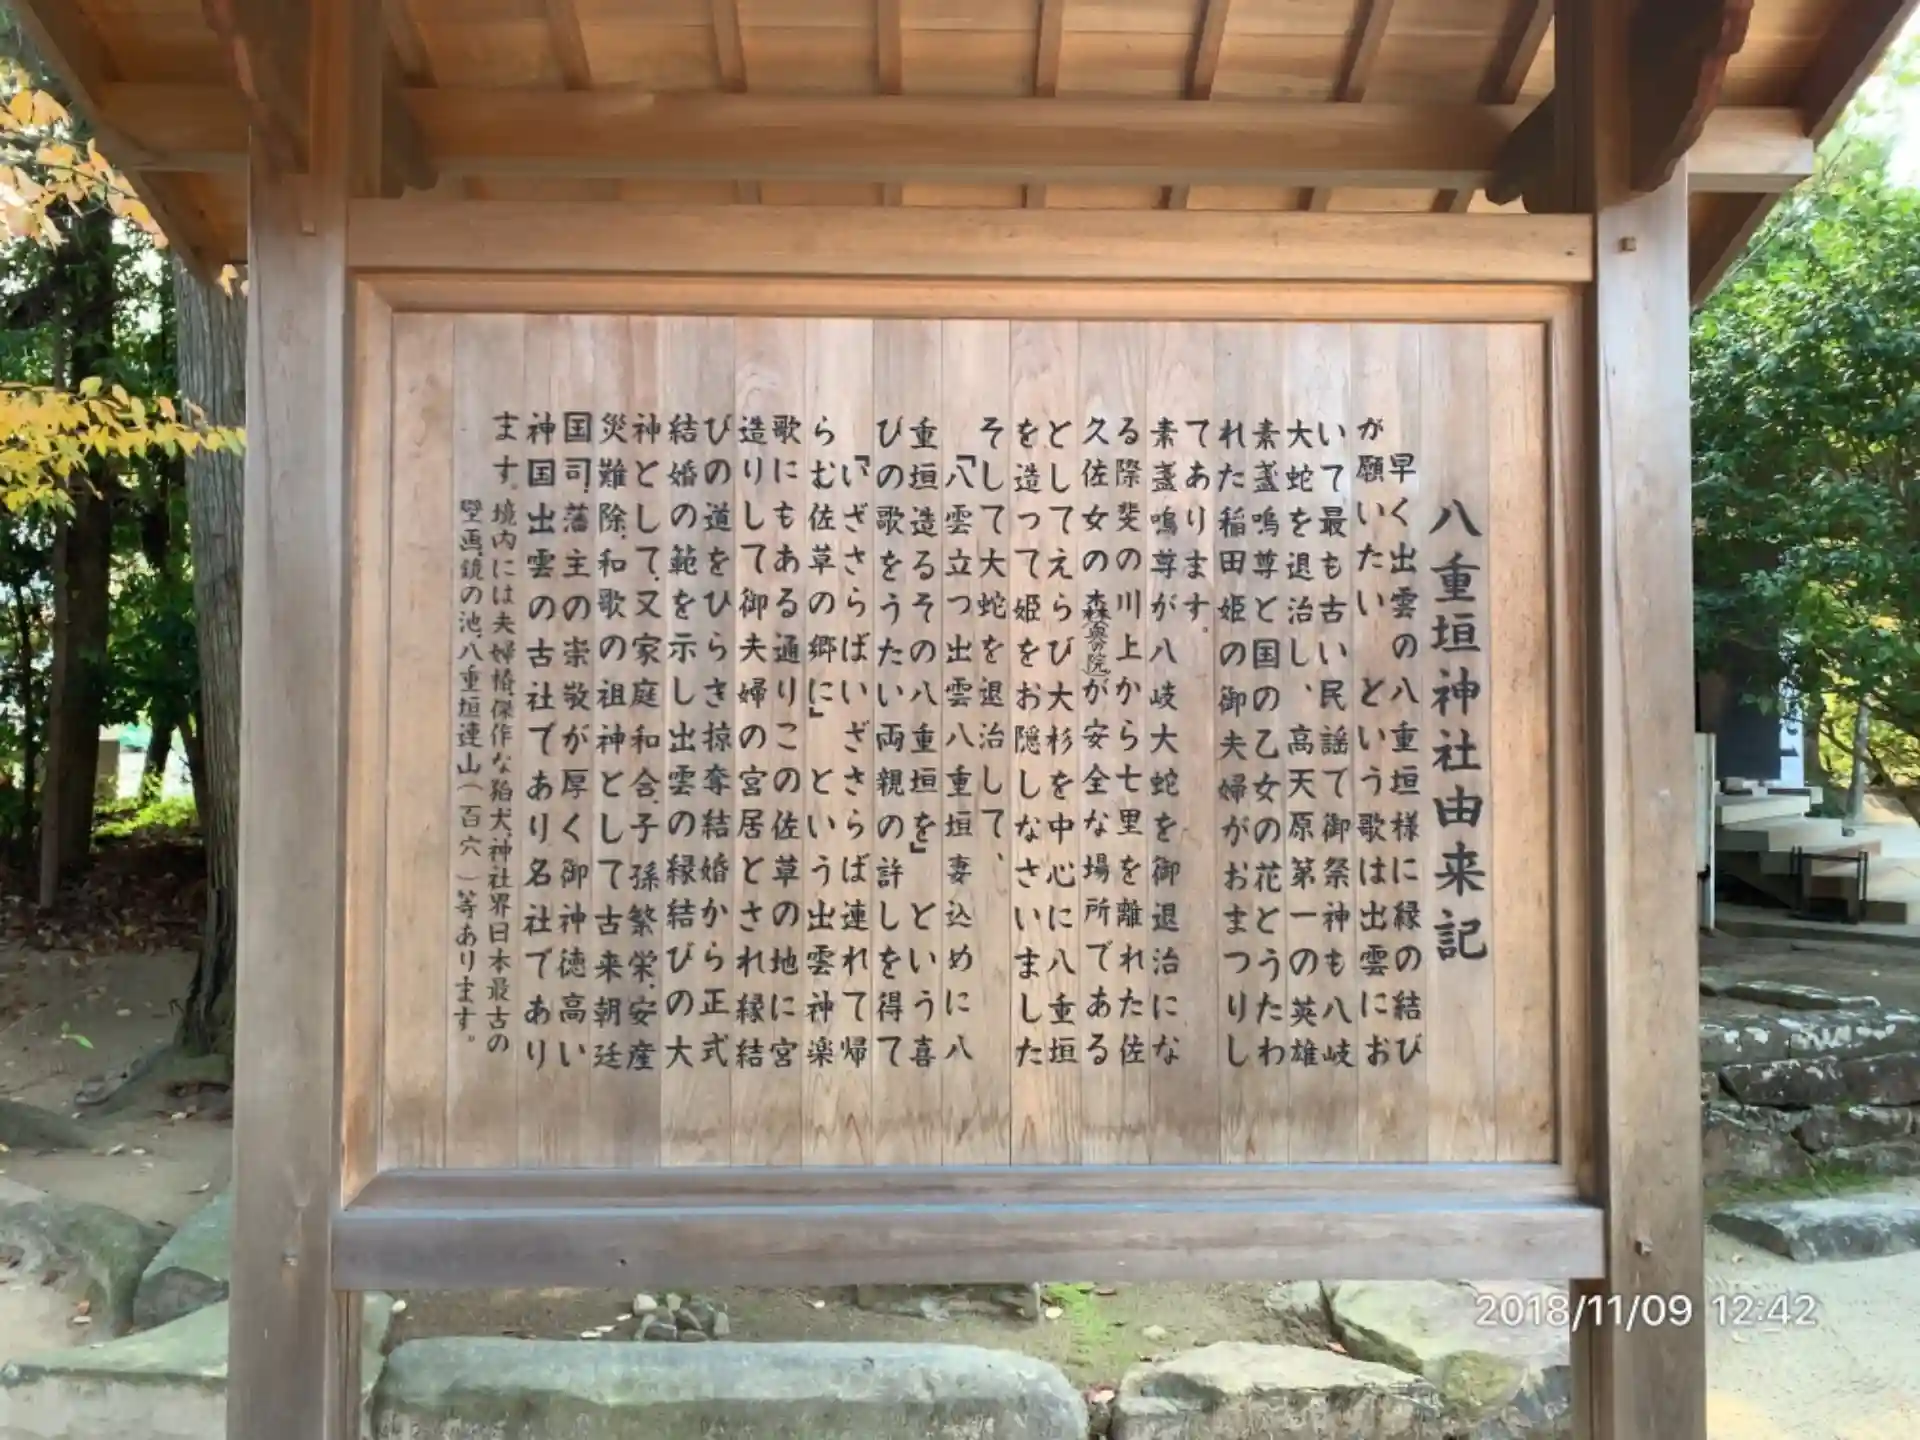 八重垣神社由来記
早く出雲の八重垣様に縁の結び
が願いたい という歌は出雲にお
いて最も古い民謡で御祭神も八岐
大蛇を退治し、高天原第一の英雄
素盞嗚尊と国の乙女の花とうたわ
れた稲田姫の御夫婦がおまつりし
てあります。
素盞嗚尊が八岐大蛇を御退治にな
る際斐の川上から七里を離れた佐
久佐女の森(奥の院)が安全な場所である
としてえらび大杉を中心に八重垣
を造って姫をお隠しなさいました
そして大蛇を退治して、
「八雲立つ出雲八重垣妻込めに八
重垣造るその八重垣を」 という喜
びの歌をうたい両親の許しを得て
「いざさらばいざさらば連れて帰
らむ佐草の郷に」 という出雲神楽
歌にもある通りこの佐草の地に宮
造りして御夫婦の宮居とされ縁結
びの道をひらき掠奪結婚から正式
結婚の範を示し出雲の縁結びの大
神として、又家庭和合、子孫繁栄、安産
災難除、和歌の祖神として古来朝廷
国司、藩主の崇敬が厚く御神徳高い
神国出雲の古社であり名社であり
ます。境内には夫婦椿、傑作な狛犬、神社界日本最古の
壁画、鏡の池、八重垣連山(百穴)等あります。
2018/11/09 12:42